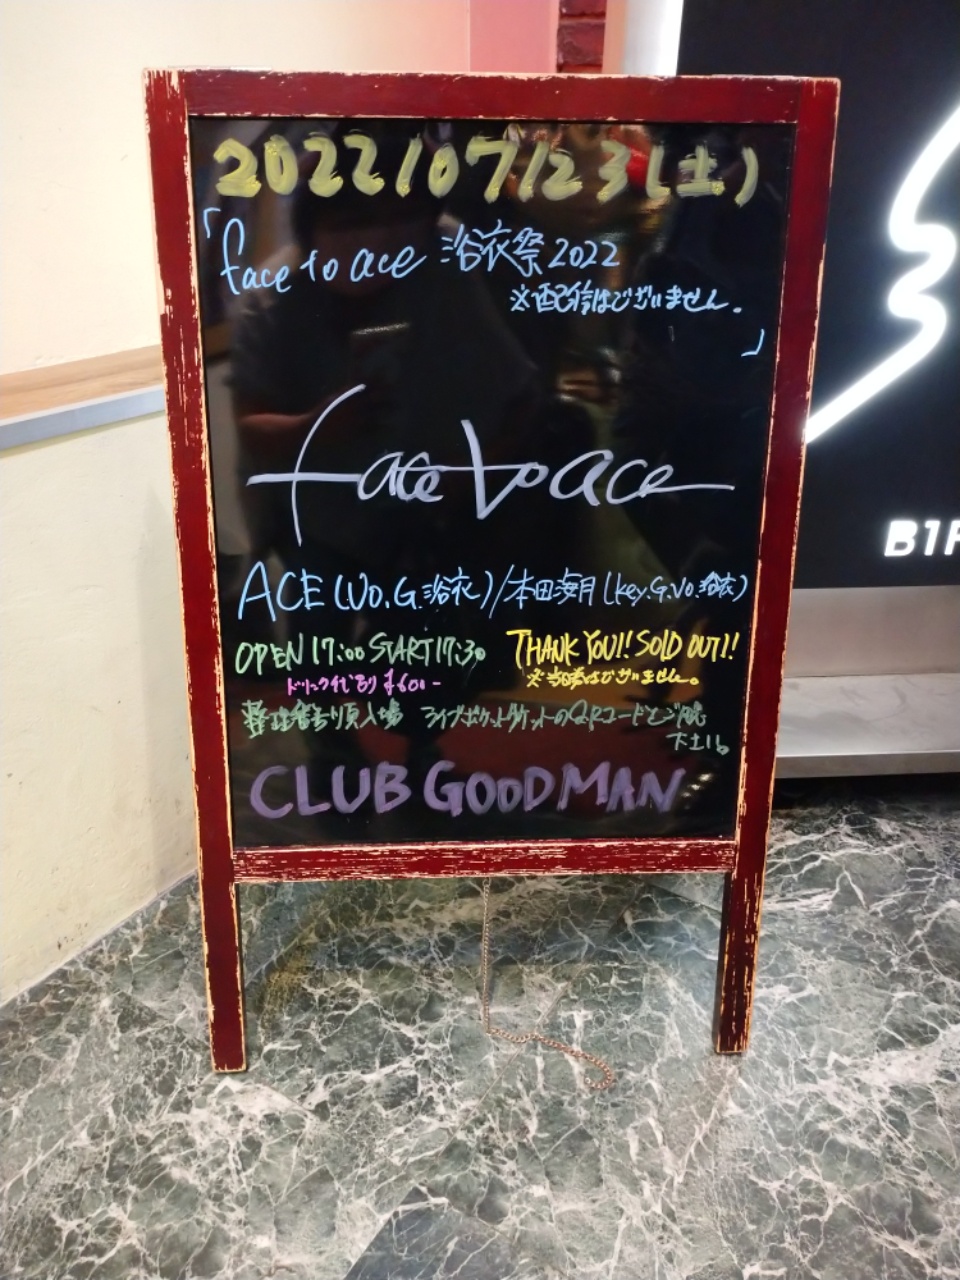 2022/07/23(土)
「face to ace 浴衣祭2022
※配信はございません。
」
face to ace
ACE(Vo.G.浴衣)/本田海月(key.G.Vo.浴衣)
OPEN 17:00 START 17:30 THANK YOU!! SOLD OUT!!
ドリンク代あり ¥600- ※当日券はございません。
整理番号順入場 ライブポケットチケットのQRコードをご提
示下さい
CLUB GOODMAN
B1F